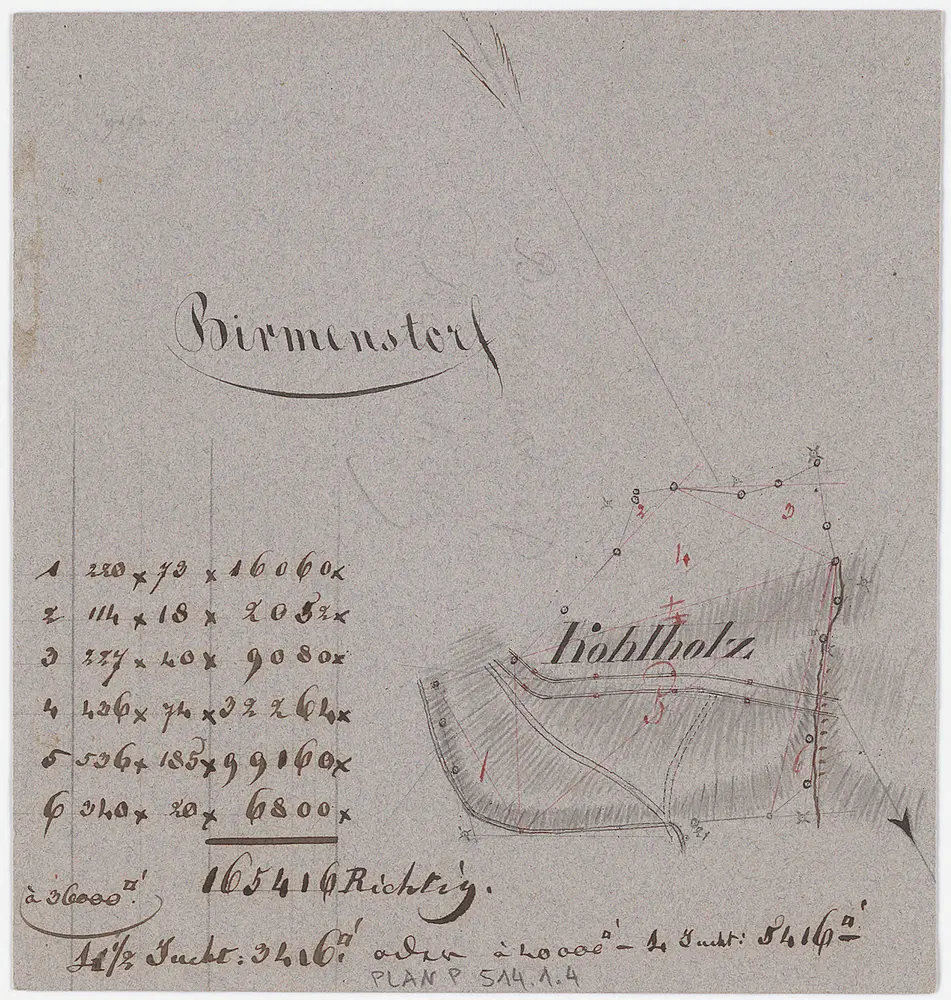 Birmenstorf
2
3
4
Kohlholz
5
1
6
1 220 x 73 x 16060 x
2 114 x 18 x 2052 x
3 227 x 40 x 9080 x
4 436 x 74 x 32264 x
5 536 x 185 x 99160 x
6 340 x 20 x 6800 x
165416 Richtig.
à 36000□'.
4 1/2 Jucht: 3416□' oder à 40000□' = 4 Jucht: 5416□'
PLAN P 514.1.4